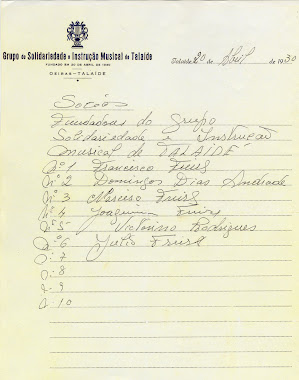 Grupo de Solidariedade e Instrução Musical de Talaide
FUNDADO EM 20 DE ABRIL DE 1930
OEIRAS-TALAIDE
Talaide, 20 de Abril de 1930
Socios
Fundadores do Grupo
Solidariedade e Instrução
Musical de TALAIDE
Nº 1 Francisco Freire
Nº 2 Domingos Dias Andrade
Nº 3 Narciso Freire
Nº 4 Joaquim Freire
Nº 5- Victorino Rodrigues
Nº 6 Julio Freire
Nº 7
Nº 8
Nº 9
Nº 10